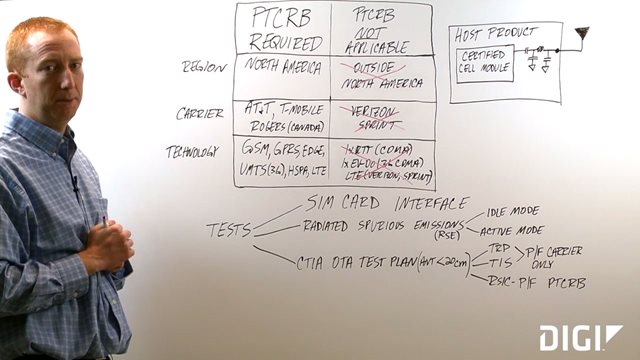 PTCRB
REQUIRED
PTCRB
NOT
APPLICABLE
REGION
NORTH AMERICA
OUTSIDE
NORTH AMERICA
CARRIER
AT&T, T-MOBILE
ROGERS (CANADA)
VERIZON
SPRINT
TECHNOLOGY
GSM, GPRS, EDGE,
UMTS(3G), HSPA, LTE
1xRTT (CDMA)
1xEV-DO (3G CDMA)
LTE (VERIZON, SPRINT)
HOST PRODUCT
CERTIFIED
CELL MODULE
TESTS
SIM CARD INTERFACE
RADIATED SPURIOUS EMISSIONS
(RSE)
IDLE MODE
ACTIVE MODE
CTIA OTA TEST PLAN (ANT < 20cm)
TRP
TIS
P/F CARRIER
ONLY
RSIC - P/F PTCRB
DIGI